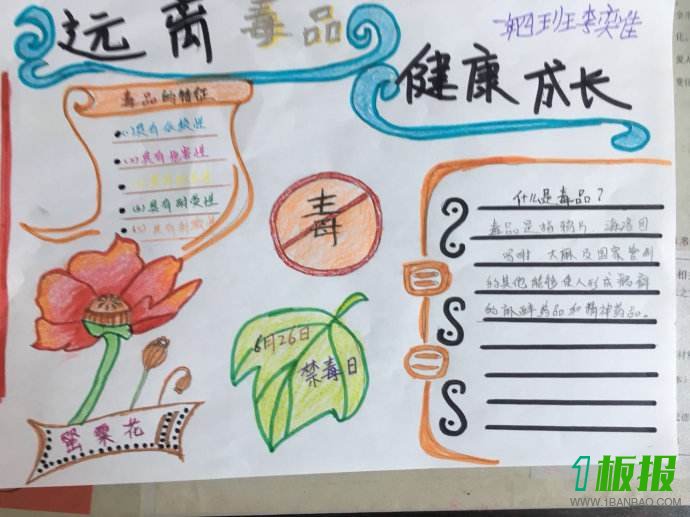 远离毒品
李奕佳
健康成长
毒品的特征
(1)具有依赖性
(2)具有危害性
(4)具有耐受性
毒
什么是毒品?
毒品是指鸦片 海洛因
吗啡 大麻及国家管制
的其他能够使人形成瘾癖
的麻醉药品和精神药品。
6月26日
禁毒日
罂粟花
1板报
WWW.1BANBAO.COM